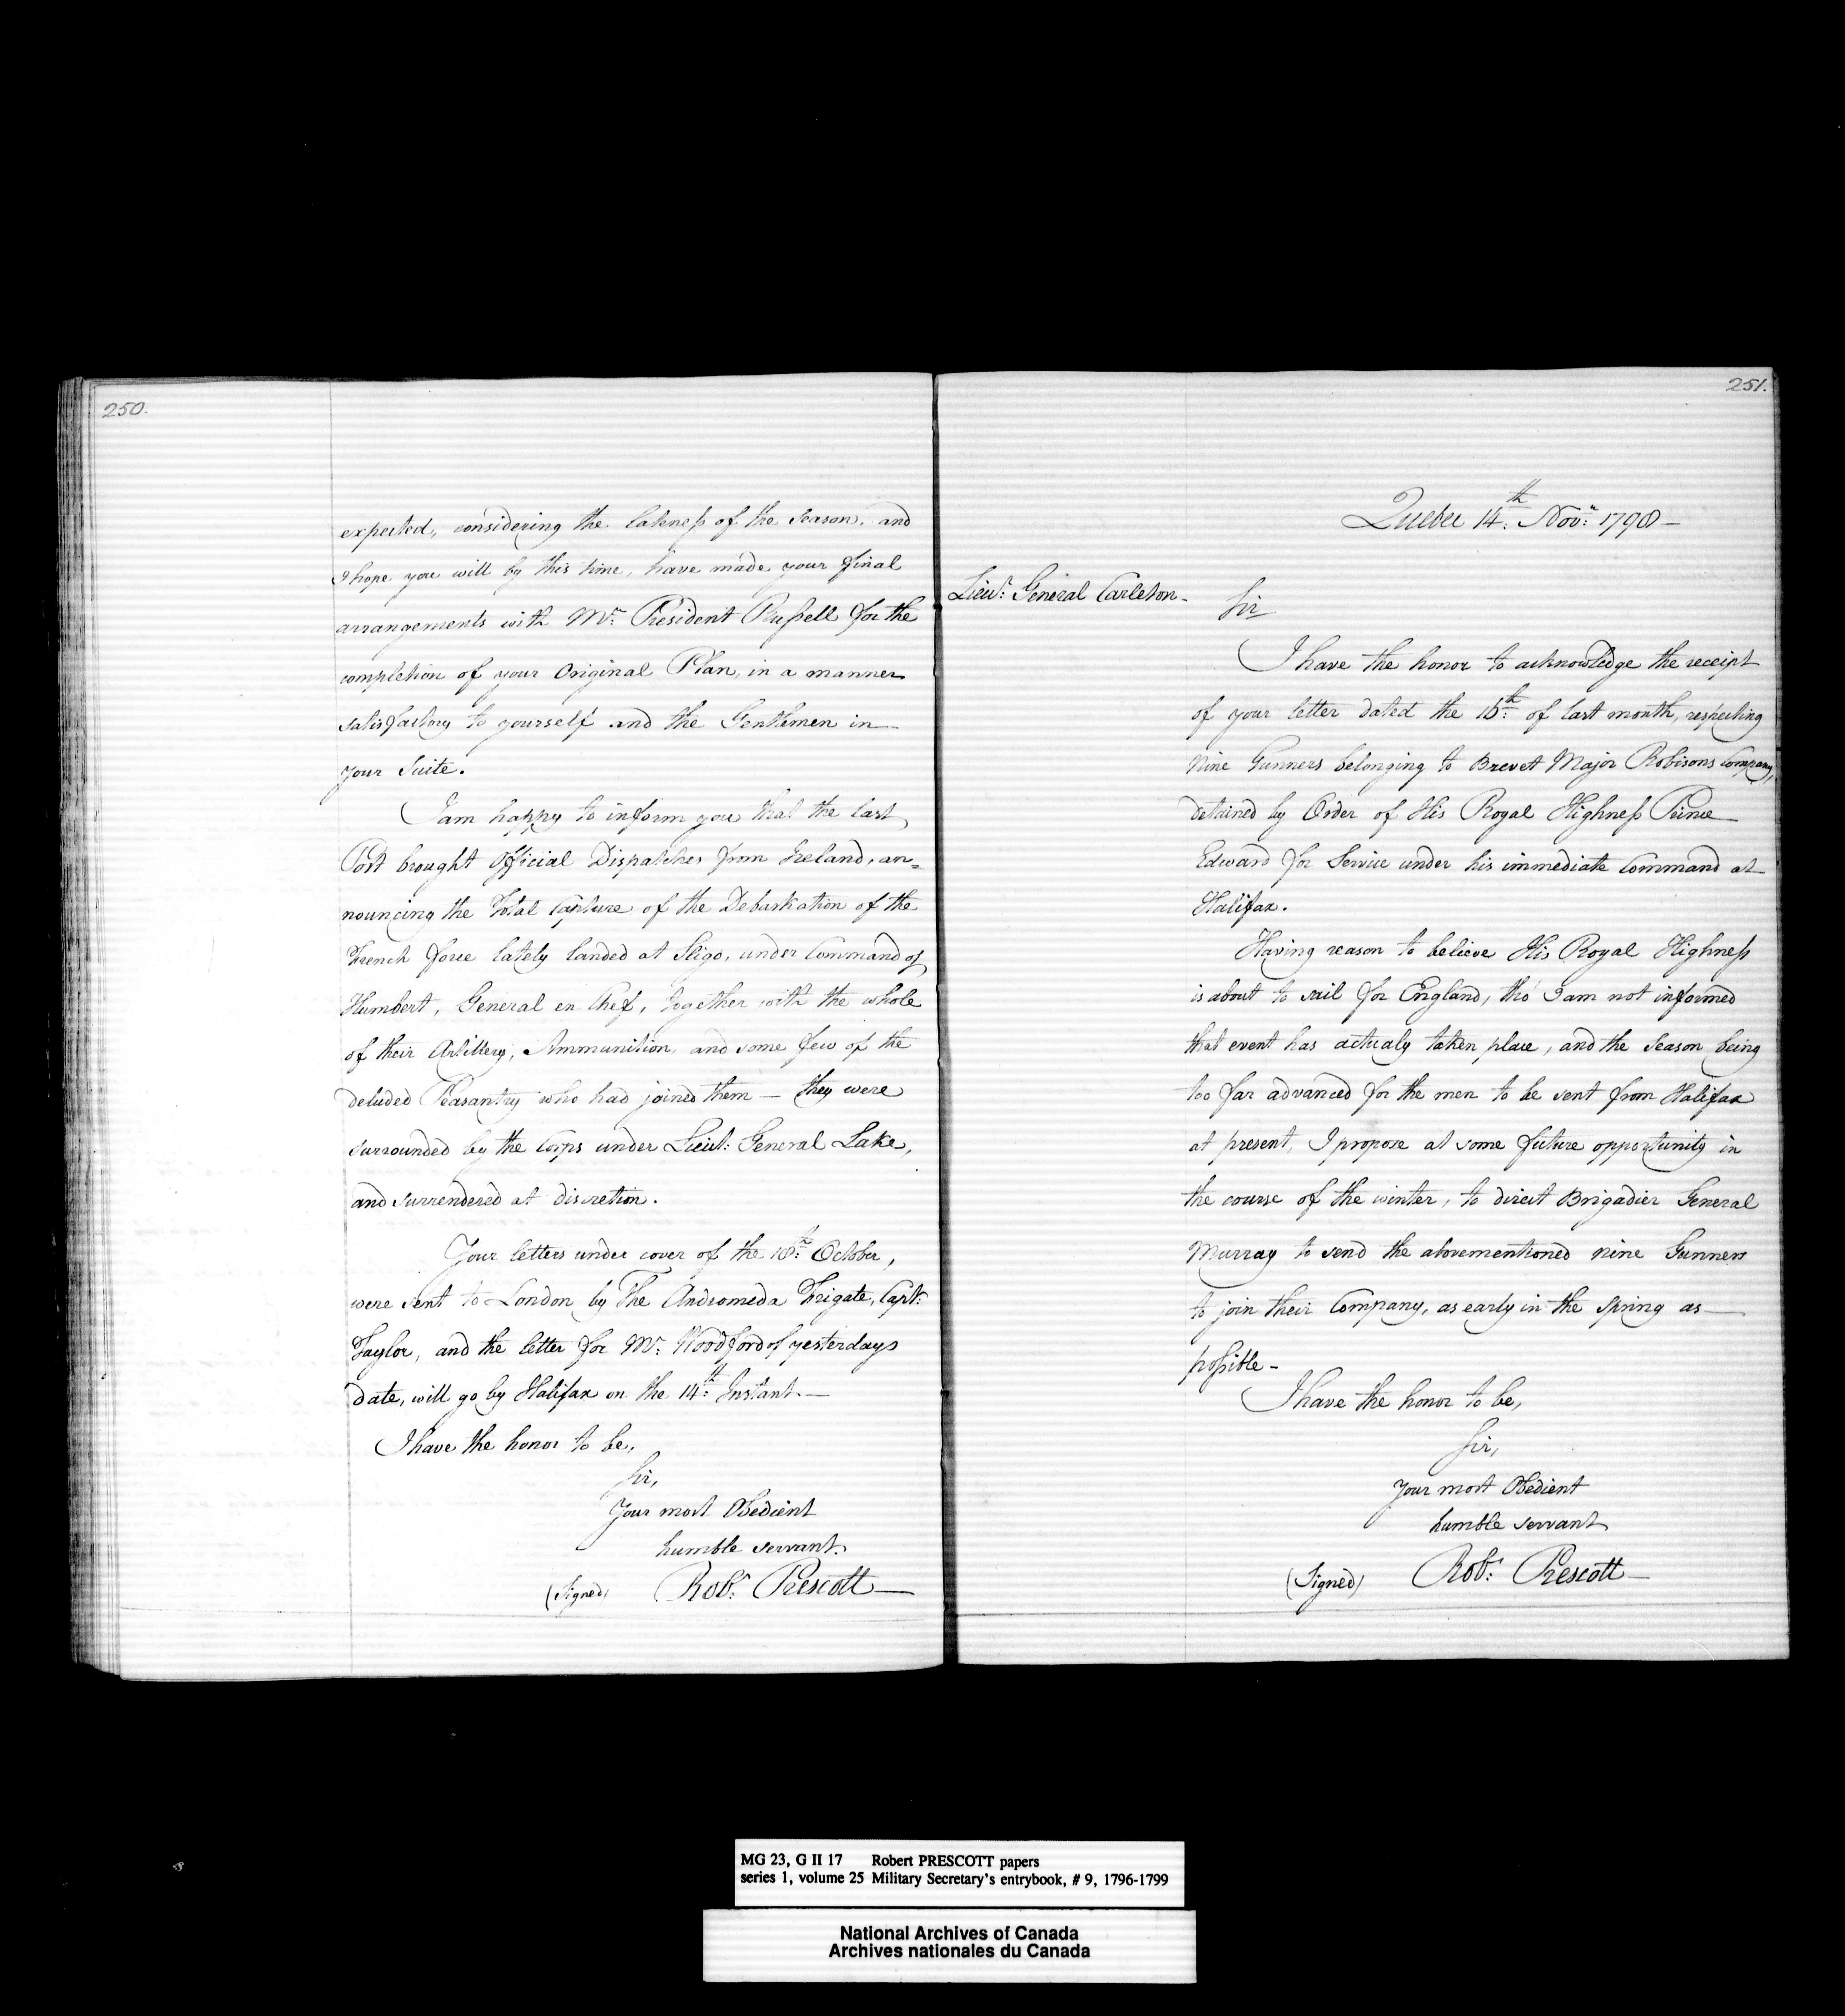 250.
expected, considering the lateness of the season, and
I hope you will by this time, have made your final
arrangements with Mr. President Russell for the
completion of your Original Plan, in a manner
satisfactory to yourself and the Gentlemen in
your Suite.
I am happy to inform you that the last
Post brought official Dispatches from Ireland, an=
nouncing the Total Capture of the Debarkation of the
French force lately landed at Sligo, under Command of
Humbert, General en Chef, together with the whole
of their Artillery, Ammunition, and some few of the
deluded Peasantry who had joined them — they were
surrounded by the Corps under Lieut: General Lake,
and surrendered at discretion.
Your letters under cover of the 18th: October,
were sent to London by The Andromeda Frigate, Capt:
Taylor, and the letter for Mr: Woodford of yesterdays
date, will go by Halifax on the 14th: Instant. —
I have the honor to be,
Sir,
Your most Obedient
humble servant.
(Signed) Robt: Prescott —
251.
Quebec 14th: Novr: 1798 —
Lieut: General Carleton -
Sir
I have the honor to acknowledge the receipt
of your letter dated the of last month, respecting
Nine Gunners belonging to Brevet Major Robisons Company,
detained by Order of His Royal Highness Prince
Edward for Service under his immediate Command at
Halifax.
Having reason to believe His Royal Highness
is about to sail for England, tho' I am not informed
that event has actualy taken place, and the Season being
too far advanced for the men to be sent from Halifax
at present, I propose at some future opportunity in
the course of the winter, to direct Brigadier General
Murray to send the abovementioned nine Gunners
to join their Company, as early in the Spring as —
possible -
I have the honor to be,
Sir,
Your most Obedient
humble servant
(Signed) Robt: Prescott —
MG 23, G II 17 Robert PRESCOTT papers
series 1, volume 25 Military Secretary's entrybook, # 9, 1796-1799
National Archives of Canada
Archives nationales du Canada